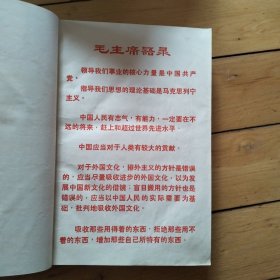 毛主席语录
领导我们事业的核心力量是中国共产
党。
指导我们思想的理论基础是马克思列宁
主义。
中国人民有志气，有能力，一定要在不
远的将来，赶上和超过世界先进水平。
中国应当对于人类有较大的贡献。
对于外国文化，排外主义的方针是错误
的，应当尽量吸收进步的外国文化，以为发
展中国新文化的借镜；盲目搬用的方针也是
错误的，应当以中国人民的实际需要为基
础，批判地吸收外国文化。
吸收那些用得着的东西，拒绝那些用不
着的东西，增加那些自己所特有的东西。